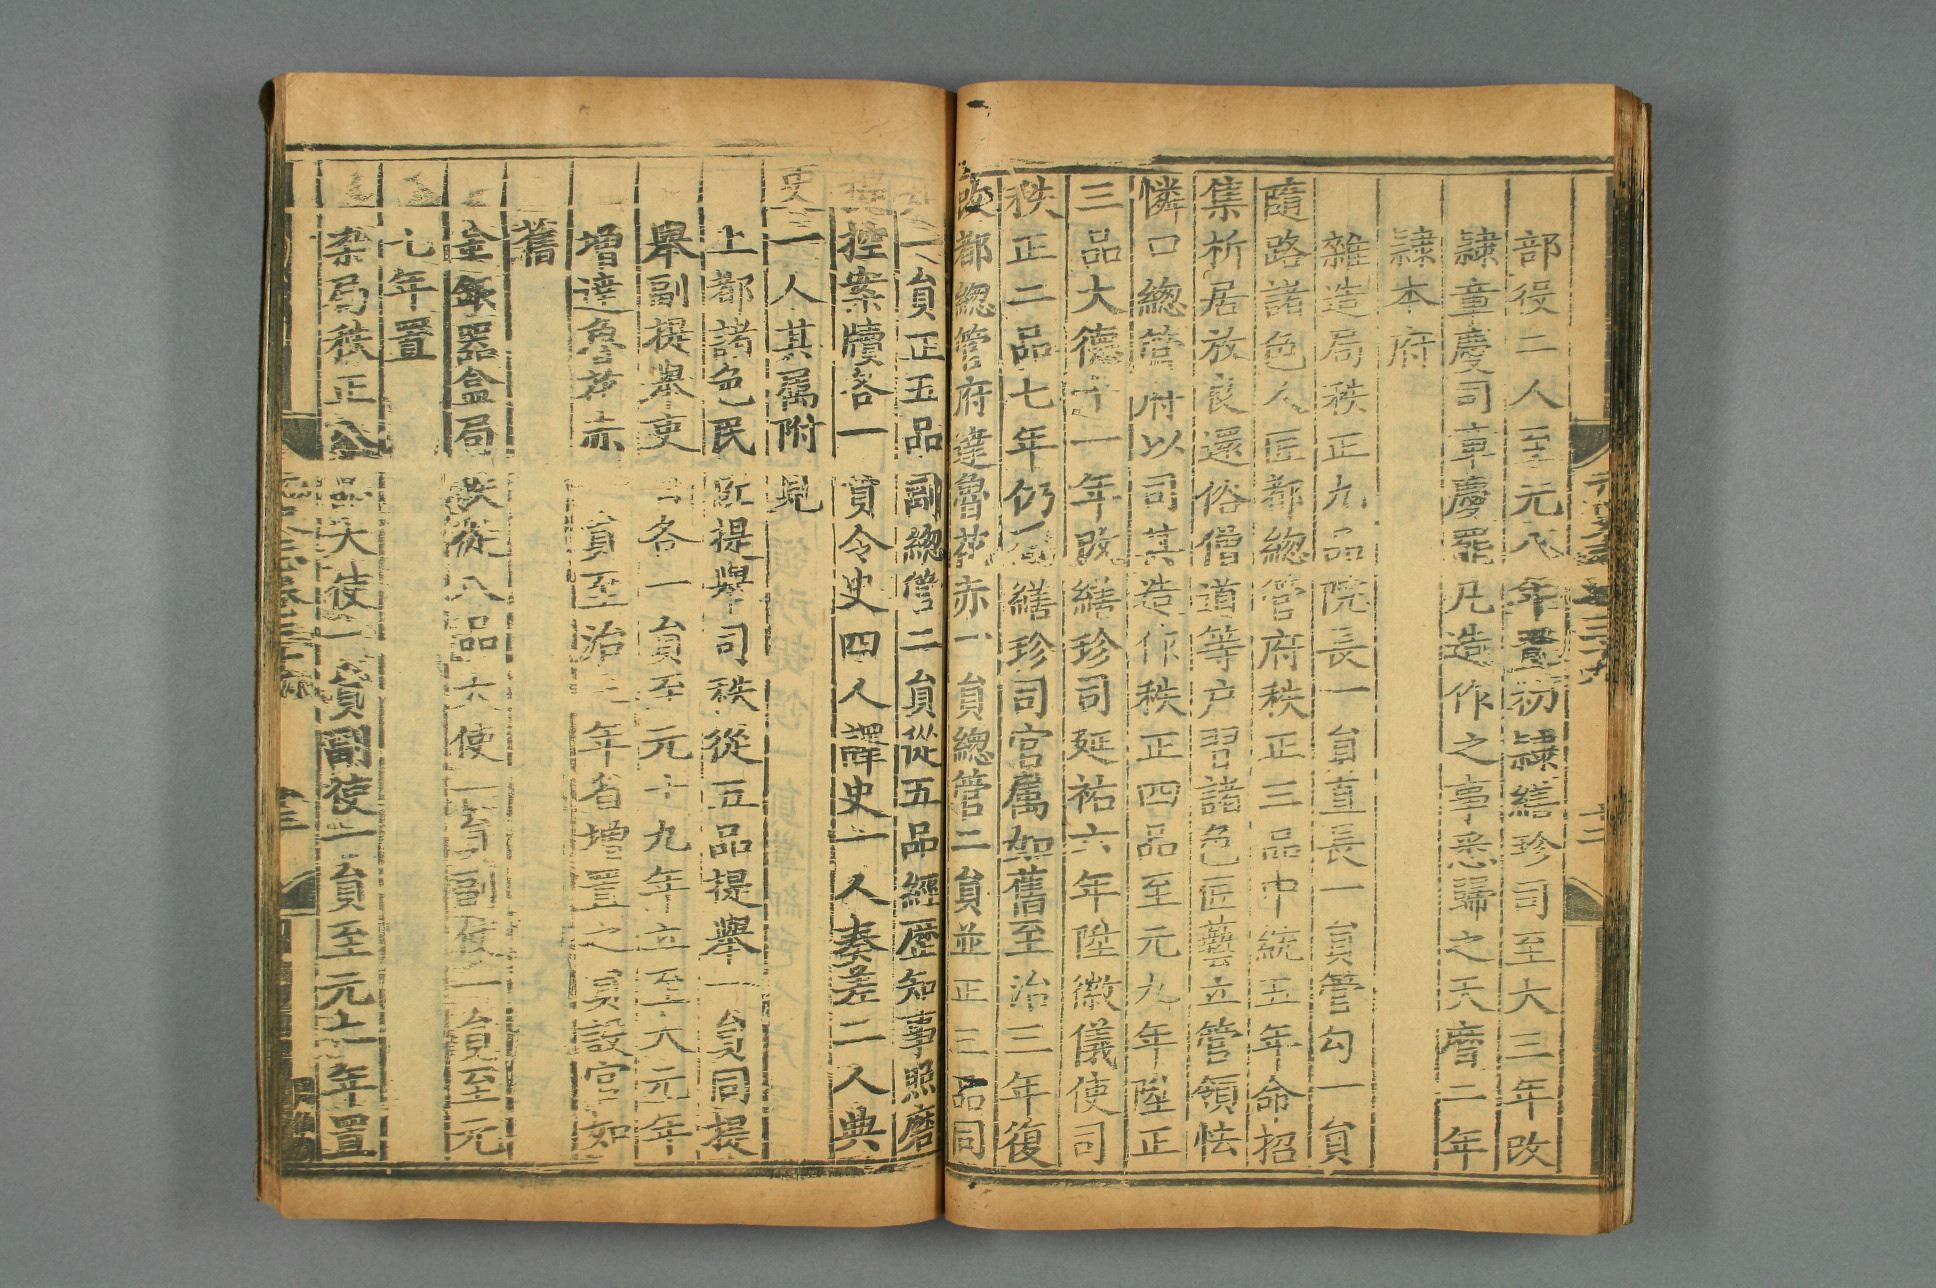 部役二人至元八年置初隷繕珍司至大三年改
隷章慶司章慶罷凡造作之事悉歸之天曆二年
隷本府
雜造局秩正九品院長一員直長一員管勾一員
隨路諸色人匠都總管府秩正三品中統五年命招
集析居放良還俗僧道等户習諸色匠藝立管領怯
憐口總管府以司其造作秩正四品至元九年陞正
三品大德十一年改繕珍司延祐六年陞徽儀使司
秩正二品七年仍爲繕珍司官属如舊至治三年復
改都總管府達魯花赤一員總管二員並正三品同
一員正五品副總管二員從五品經歷知事照磨
控案牘各一員令史四人譯史一人奏差二人典
吏一人其属附見
上都諸色民匠提舉司秩從五品提舉一員同提
舉副提舉吏目各一員至元十九年立至大元年
增達魯花赤一員至治三年省增置之員設官如
舊
金銀器盒局秩從八品大使一員副使一員至元
七年置
染局秩正八品大使一員副使一員至元十一年置